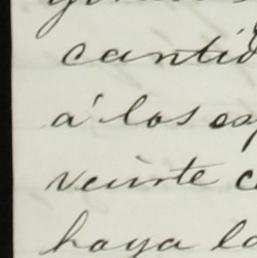 cantid
á los esp
veinte c
haya la